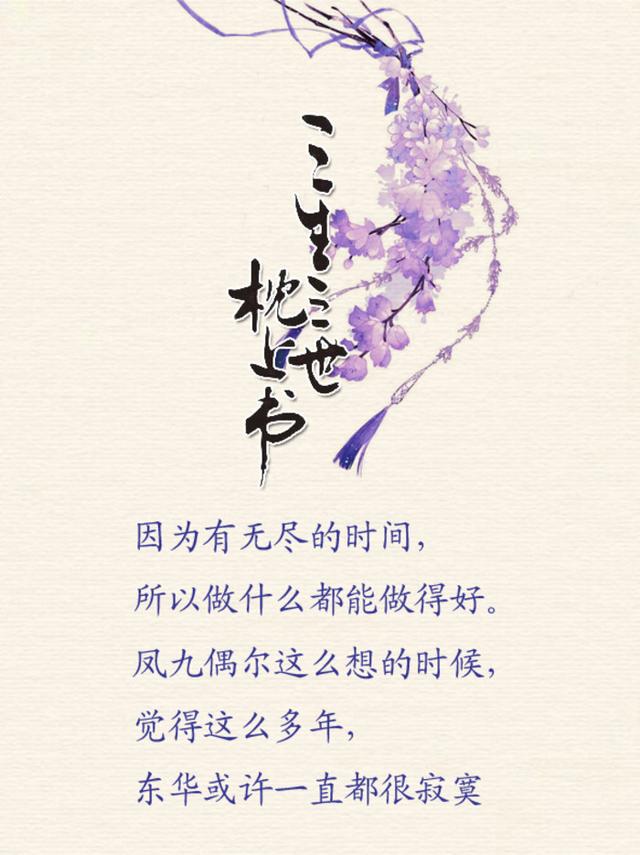 三生三世
枕上书
因为有无尽的时间，
所以做什么都能做得好。
凤九偶尔这么想的时候，
觉得这么多年，
东华或许一直都很寂寞